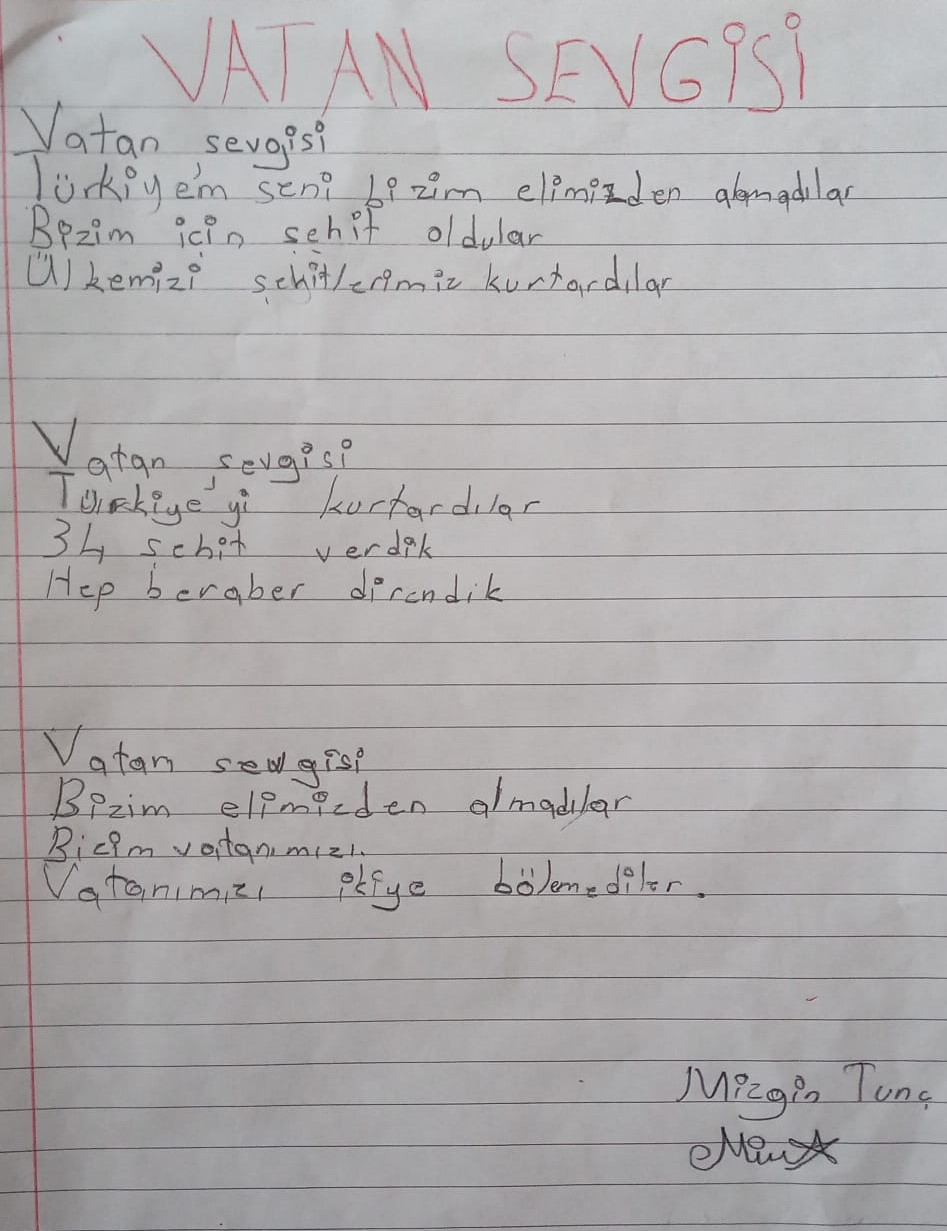 VATAN SEVGİSİ
Vatan sevgisi
Türkiye'm seni bizim elimizden almadılar
Bizim için şehit oldular
Ülkemizi şehitlerimiz kurtardılar
Vatan sevgisi
Türkiye'yi kurtardılar
34 şehit verdik
Hep beraber direndik
Vatan sevgisi
Bizim elimizden almadılar
Bizim vatanımızı.
Vatanımızı ikiye bölemediler.
Mizgin Tunç